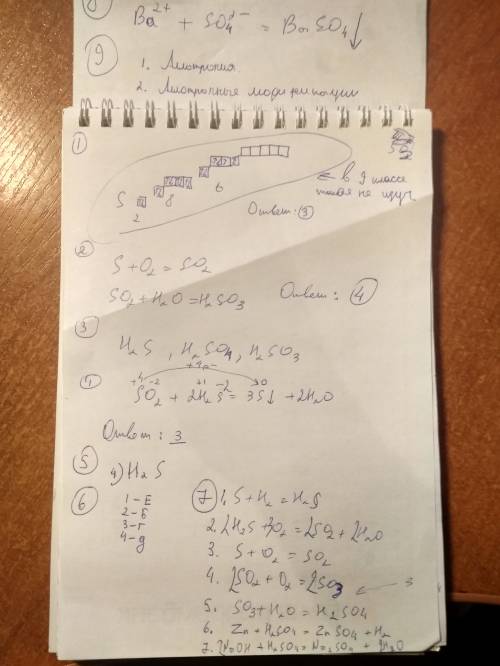 8
Ba²⁺ + SO₄²⁻ = BaSO₄↓
9
1. Аллотропия.
2. Аллотропные модификации
1
S
2 8 6
← в 9 классе
такая не изуч.
Ответ: 3
2
S + O₂ = SO₂
SO₂ + H₂O = H₂SO₃
Ответ: 4
3
H₂S, H₂SO₄, H₂SO₃
4
+4 -2 +1 -2 0
SO₂ + 2H₂S = 3S↓ + 2H₂O
Ответ: 3
5
4) H₂S
6
1 - Е
2 - Б
3 - Г
4 - Д
7
1. S + H₂ = H₂S
2. 2H₂S + 3O₂ = 2SO₂ + 2H₂O
3. S + O₂ = SO₂
4. 2SO₂ + O₂ = 2SO₃ ← 3
5. SO₃ + H₂O = H₂SO₄
6. Zn + H₂SO₄ = ZnSO₄ + H₂
7. 2NaOH + H₂SO₄ = Na₂SO₄ + 2H₂O